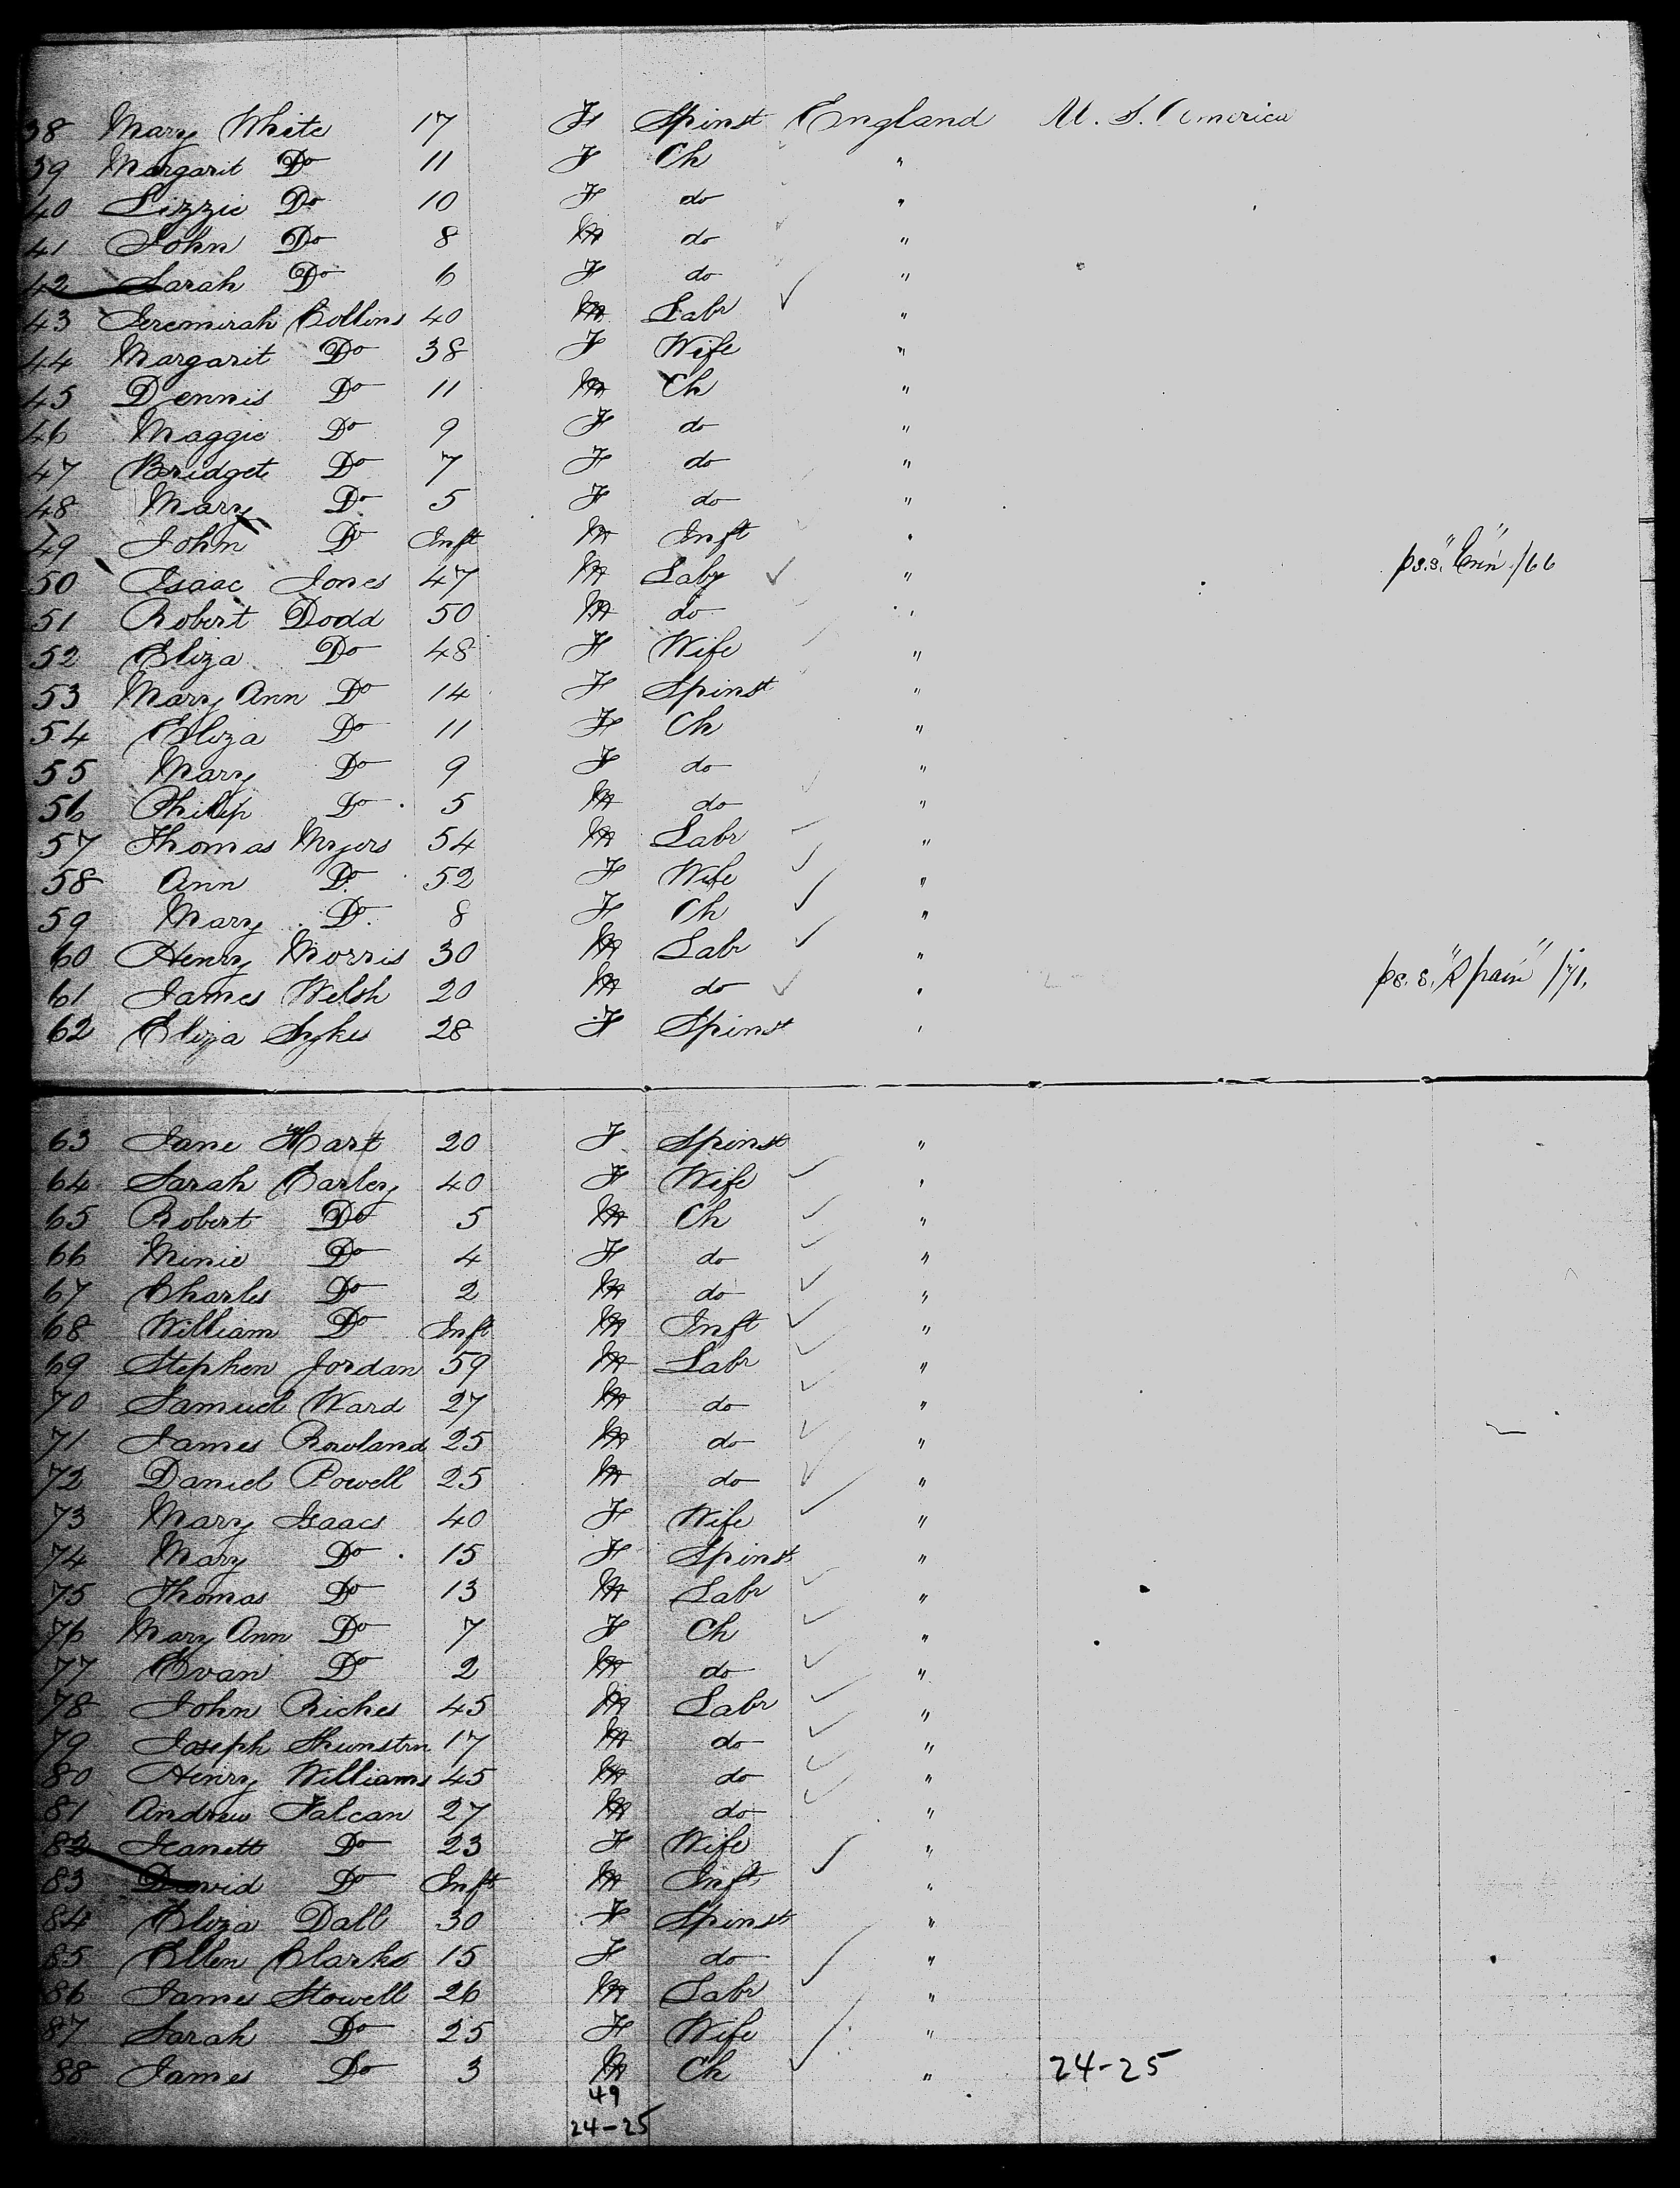 38 Mary White 17 F Spinst England U. S. America
39 Margarit Do 11 F Ch "
40 Lizzie Do 10 F do "
41 John Do 8 M do "
42 Sarah Do 6 F do "
43 Jeremirah Collins 40 M Labr "
44 Margarit Do 38 F Wife "
45 Dennis Do 11 M Ch "
46 Maggie Do 9 F do "
47 Bridget Do 7 F do "
48 Mary Do 5 F do "
49 John Do Inft M Inft "
50 Isaac Jones 47 M Labr " ps.s. "Erin" /66
51 Robert Dodd 50 M do "
52 Eliza Do 48 F Wife "
53 Mary Ann Do 14 F Spinst "
54 Eliza Do 11 F Ch "
55 Mary Do 9 F do "
56 Philip Do 5 M do "
57 Thomas Myers 54 M Labr "
58 Ann Do 52 F Wife "
59 Mary Do 8 F Ch "
60 Henry Morris 30 M Labr "
61 James Welsh 20 M do " ps. s. "Spain" /71.
62 Eliza Sykes 28 F Spinst "
63 Jane Hart 20 F Spinst "
64 Sarah Earley 40 F Wife "
65 Robert Do 5 M Ch "
66 Minie Do 4 F do "
67 Charles Do 2 M do "
68 William Do Inft M Inft "
69 Stephen Jordan 59 M Labr "
70 Samuel Ward 27 M do "
71 James Rowland 25 M do "
72 Daniel Powell 25 M do "
73 Mary Isaacs 40 F Wife "
74 Mary Do 15 F Spinst "
75 Thomas Do 13 M Labr "
76 Mary Ann Do 7 F Ch "
77 Evan Do 2 M do "
78 John Riches 45 M Labr "
79 Joseph 17 M do "
80 Henry Williams 45 M do "
81 Andrew Falcan 27 M do "
82 Jeanett Do 23 F Wife "
83 David Do Inft M Inft "
84 Eliza Dall 30 F Spinst "
85 Ellen Clarke 15 F do "
86 James Stowell 26 M Labr "
87 Sarah Do 25 F Wife "
88 James Do 3 M Ch " 24-25
49
24-25